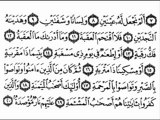 أَلَمْ نَجْعَل لَّهُۥ عَيْنَيْنِ ٨ وَلِسَانًا وَشَفَتَيْنِ ٩ وَهَدَيْنَٰهُ
ٱلنَّجْدَيْنِ ١٠ فَلَا ٱقْتَحَمَ ٱلْعَقَبَةَ ١١ وَمَآ أَدْرَىٰكَ مَا ٱلْعَقَبَةُ ١٢
فَكُّ رَقَبَةٍ ١٣ أَوْ إِطْعَٰمٌ فِى يَوْمٍ ذِى مَسْغَبَةٍ ١٤ يَتِيمًا ذَا مَقْرَبَةٍ ١٥
أَوْ مِسْكِينًا ذَا مَتْرَبَةٍ ١٦ ثُمَّ كَانَ مِنَ ٱلَّذِينَ ءَامَنُوا۟ وَتَوَاصَوْا۟
بِٱلصَّبْرِ وَتَوَاصَوْا۟ بِٱلْمَرْحَمَةِ ١٧ أُو۟لَٰٓئِكَ أَصْحَٰبُ ٱلْمَيْمَنَةِ ١٨
وَٱلَّذِينَ كَفَرُوا۟ بِـَٔايَٰتِنَا هُمْ أَصْحَٰبُ ٱلْمَشْـَٔمَةِ ١٩ عَلَيْهِمْ نَارٌ مُّؤْصَدَةٌۢ ٢٠